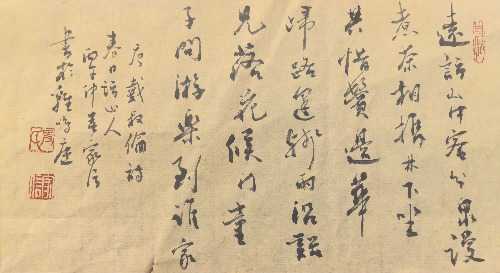 遠訪山中客分泉謾
煮茶相携林下坐
共惜鬢邊華
歸路逢殘雨沿谿
見落花候門童
子問游樂到誰家
唐戴叔倫詩
春日訪山人
丙午仲春家
書於雞鳴